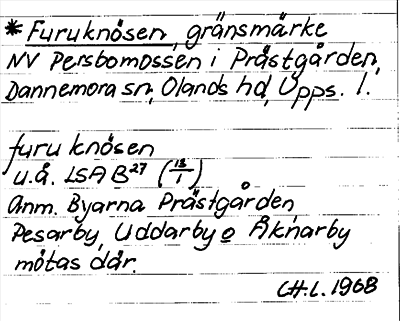 * Furuknösen, gränsmärke
NV Persbomossen i Prästgården,
Dannemora sn, Olands hd, Upps. l.
furuknösen
u.å. LSA B27 (13/1)
Anm. Byarna Prästgården
Pesarby, Uddarby o Åknarby
mötas där.
C.H.L. 1968